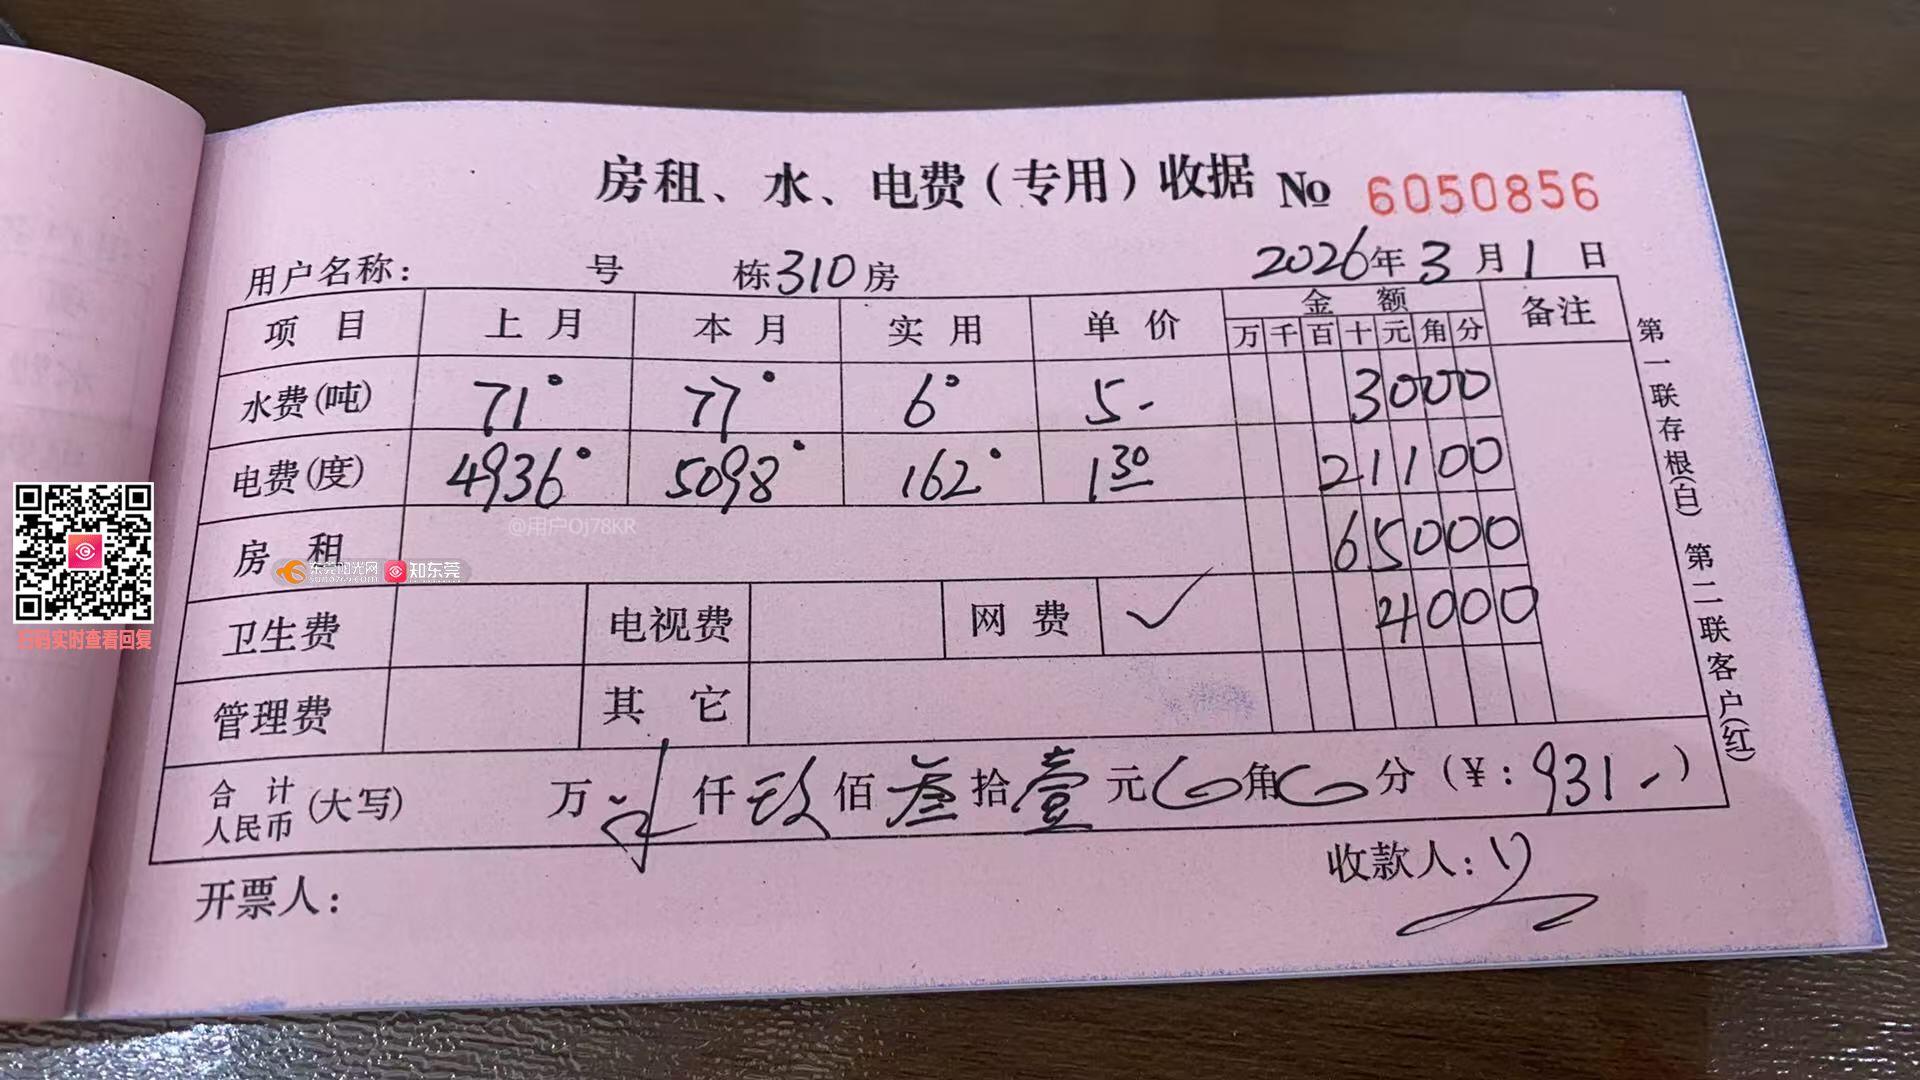 房租、水、电费(专用)收据 No 6050856
用户名称: 号 栋310房 2026年3月1日
项目 上月 本月 实用 单价 金额 备注
万千百十元角分
水费(吨) 71° 77° 6° 5- 3000
电费(度) 4936° 5098° 162° 1.30 21100
@用户Oj78KR
房租 65000
东莞阳光网 sun0769.com 知东莞
卫生费 电视费 网费 ✓ 4000
管理费 其它
合计人民币(大写) 万 仟玖佰叁拾壹元0角0分(¥:931-)
开票人: 收款人:
第一联存根(白) 第二联客户(红)
扫码实时查看回复